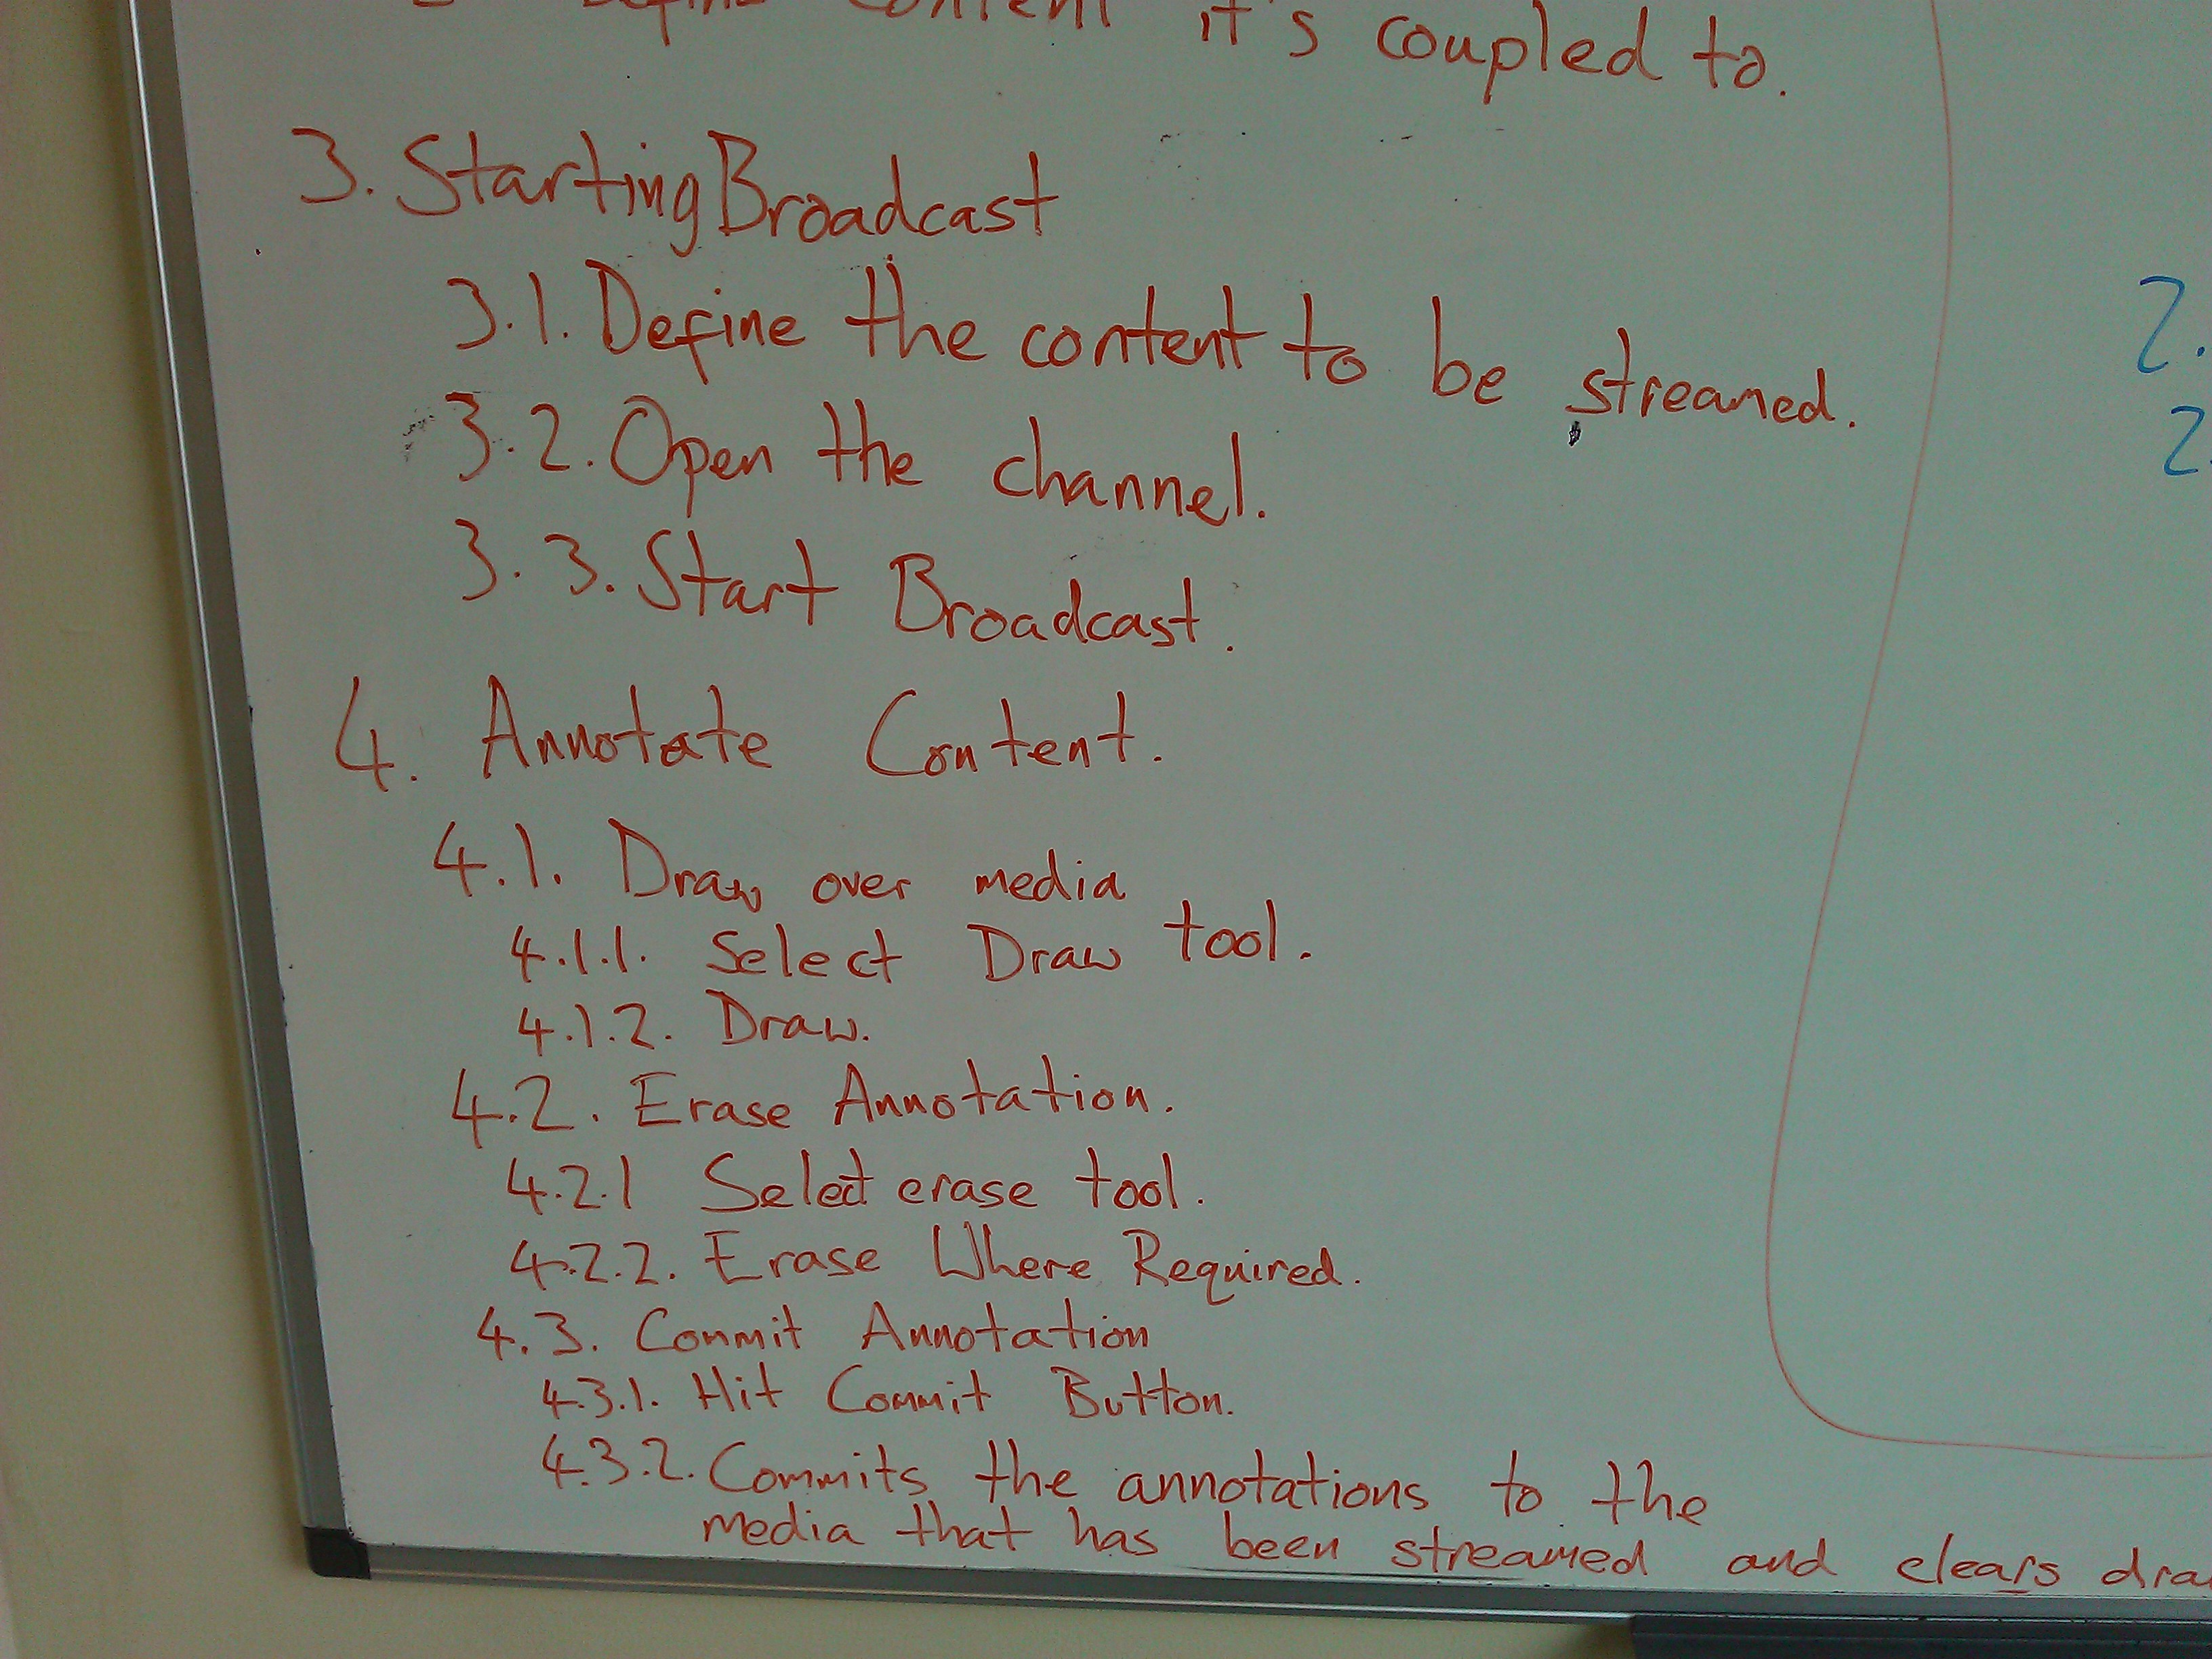 Define content it's coupled to.
3. Starting Broadcast
3.1. Define the content to be streamed.
3.2. Open the channel.
3.3. Start Broadcast.
4. Annotate Content.
4.1. Draw over media
4.1.1. Select Draw tool.
4.1.2. Draw.
4.2. Erase Annotation.
4.2.1 Select erase tool.
4.2.2. Erase Where Required.
4.3. Commit Annotation
4.3.1. Hit Commit Button.
4.3.2. Commits the annotations to the
media that has been streamed and clears
2.
2.